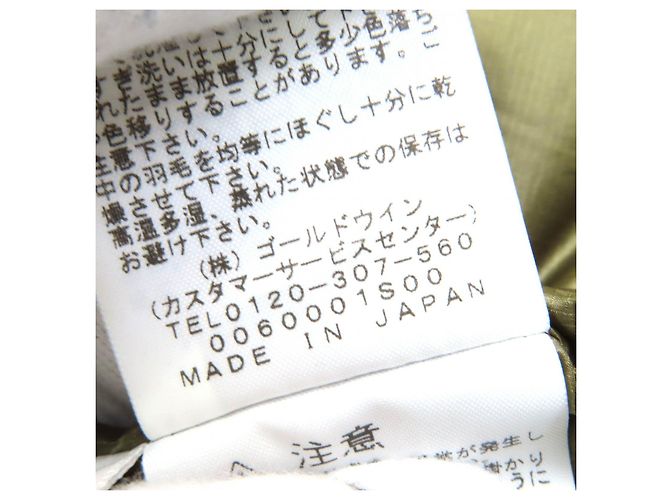 すすぎ洗いは十分にして下
れたまま放置すると多少色落ち
色移りすることがあります。ご
注意下さい。
中の羽毛を均等にほぐし十分に乾
燥させて下さい。
高温多湿、蒸れた状態での保存は
お避け下さい。
(株)ゴールドウイン
(カスタマーサービスセンター)
TEL0120-307-560
0060001S00
MADE IN JAPAN
注意
が発生し
掛かり
うに